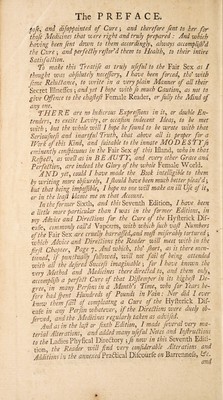 The PREFACE.
pose, and disappointed of Cure; and therefore sent to her for
those Medicines that were right and truly prepared: And which
having been sent down to them accordingly, always accomplish'd
the Cure, and perfectly restor'd them to Health, to their intire
Satisfaction.
To make this Treatise as truly useful to the Fair Sex as I
thought was absolutely necessary, I have been forced, tho' with
some Reluctance, to write in a very plain Manner of all their
Secret Illnesses; and yet I hope with so much Caution, as not to
give Offence to the chastest Female Reader, or sully the Mind of
any one.
THERE are no bawdrous Expressions in it, or double En-
tenders, to excite Levity, or occasion indecent Ideas, to be met
with; but the whole will I hope be found to be wrote with that
Seriousness and heartful Truth, that above all is proper for a
Work of this Kind, and suitable to the innate MODESTY so
eminently conspicuous in the Fair Sex of this Island, who in that
Respect, as well as in BEAUTY, and every other Grace and
Perfection, are indeed the Glory of the whole Female World.
AND yet, could I have made the Book intelligible to them
by writing more abstrusely, I should have been much better pleas'd;
but that being impossible, I hope no one will make an ill Use of it,
or in the least blame me in that Account.
In the former Sixth, and this Seventh Edition, I have been
a little more particular than I was in the former Editions, in
my Advice and Directions for the Cure of the Hysterick Dis-
ease, commonly call'd Vapours, with which such vast Numbers
of the Fair Sex are cruelly harrass'd, and most miserably tortured;
which Advice and Directions the Reader will meet with in the
first Chapter, Page 7. And which, she shall, as is there men-
tioned, if punctually followed, will not fail of being attended
with all the desired Success imaginable; for I have known the
very Method and Medicines there directed to, and them only,
accomplish a perfect Cure of that Distemper in its highest De-
gree, in many Persons in a Month's Time, who for Years be-
fore had spent Hundreds of Pounds in Vain: Nor did I ever
know them fail of compleating a Cure of the Hysterick Dis-
ease in any Person whatever, if the Directions were duely ob-
served, and the Medicines regularly taken as advised.
And as in the last or sixth Edition, I made several very ma-
terial Alterations, and added many useful Notes and Instructions
to the Ladies Physical Directory; so now in this Seventh Editi-
on, the Reader will find very considerable Alteration and
Additions in the annexed Practical Discourse on Barrenness, &c.
and